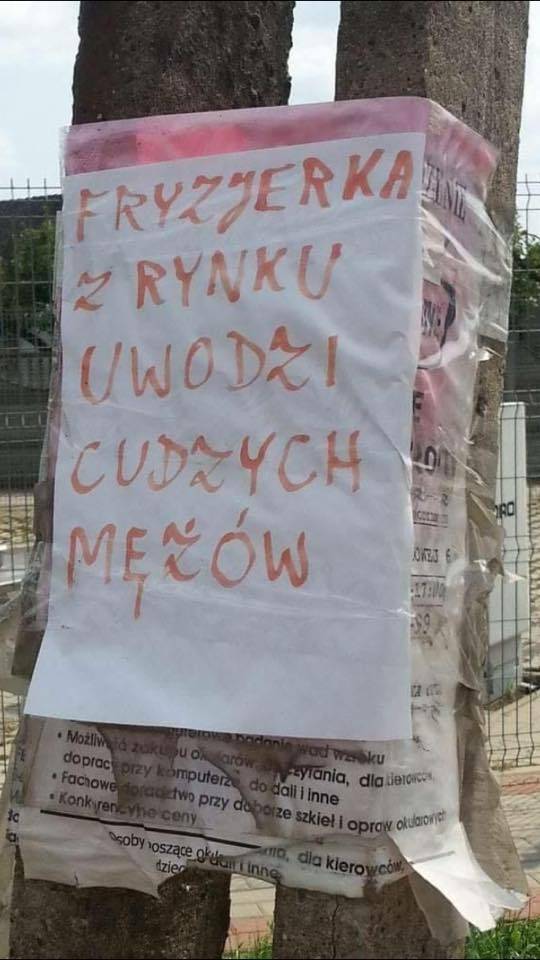 FRYZJERKA
Z RYNKU
UWODZI
CUDZYCH
MĘŻÓW
badanie wad wzroku
• Możliwość zakupu okularów, czytania, dla kierowców,
do pracy przy komputerze, do dali i inne
• Fachowe doradztwo przy doborze szkieł i opraw okularowych
• Konkurencyjne ceny
osoby noszące dla kierowców,
do dali i inne